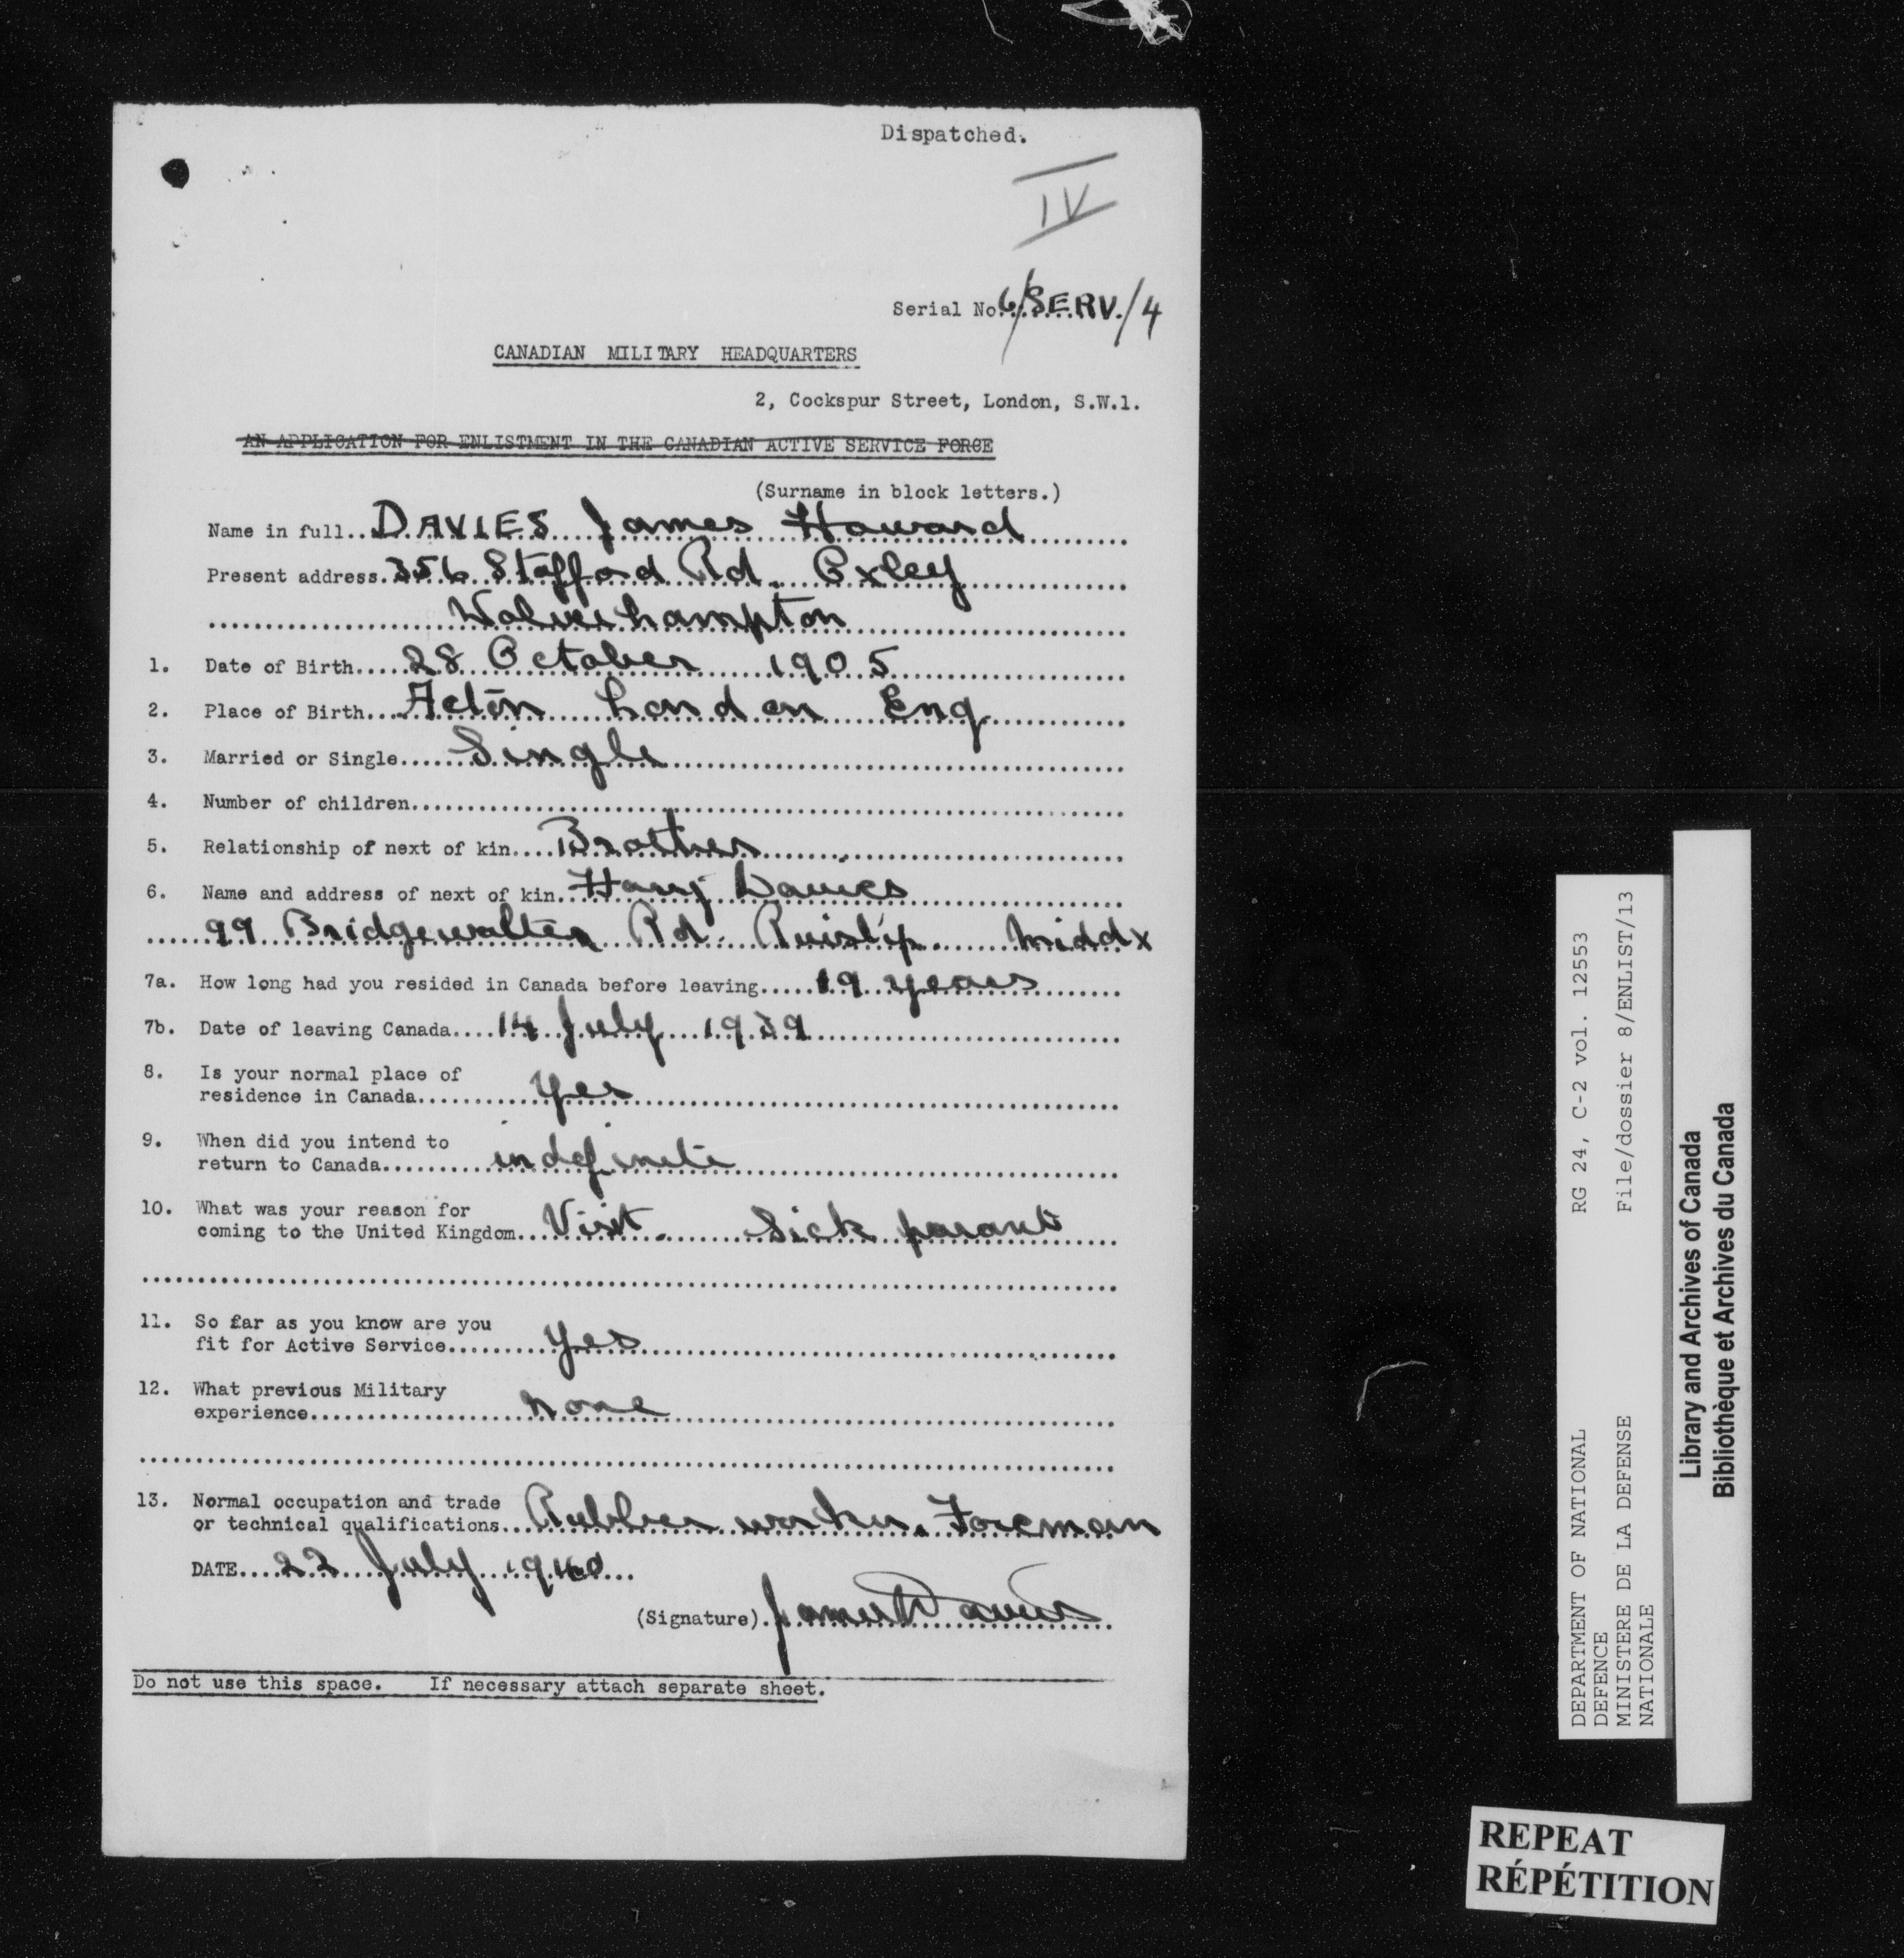 Dispatched.
IV
Serial No. 6/SERV./4
CANADIAN MILITARY HEADQUARTERS
2, Cockspur Street, London, S.W.1.
AN APPLICATION FOR ENLISTMENT IN THE CANADIAN ACTIVE SERVICE FORCE
(Surname in block letters.)
Name in full..DAVIES James Howard
Present address.356 Stafford Rd. Oxley
Wolverhampton
1. Date of Birth.....28 October 1905
2. Place of Birth...Acton London Eng
3. Married or Single.....Single
4. Number of children
5. Relationship of next of kin....Brother
6. Name and address of next of kin.Harry Davies
99 Bridgewalter Rd. Ruislip. Middx
7a. How long had you resided in Canada before leaving.....19 years
7b. Date of leaving Canada....14 July 1939
8. Is your normal place of
residence in Canada...........yes
9. When did you intend to
return to Canada.........indefinite
10. What was your reason for
coming to the United Kingdom...Visit. Sick parent
11. So far as you know are you
fit for Active Service.........yes
12. What previous Military
experience....................none
13. Normal occupation and trade
or technical qualifications...Rubber worker. Foreman
DATE....22 July 1940...
(Signature).James H Davies
Do not use this space. If necessary attach separate sheet.
DEPARTMENT OF NATIONAL
DEFENCE
MINISTERE DE LA DEFENSE
NATIONALE
RG 24, C-2 vol. 12553
File/dossier 8/ENLIST/13
Library and Archives of Canada
Bibliothèque et Archives du Canada
REPEAT
RÉPÉTITION